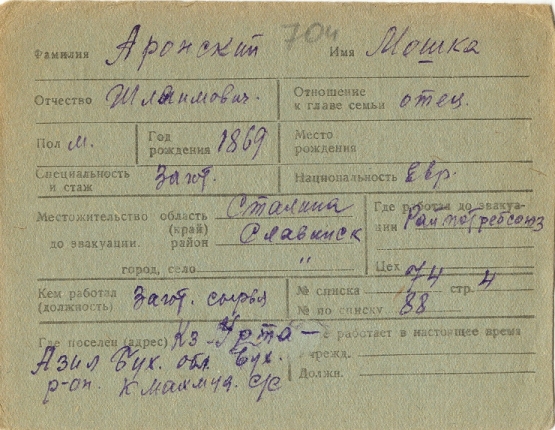 704
Фамилия Аронский Имя Мошка
Отчество Шлаимович. Отношение к главе семьи отец.
Пол м. Год рождения 1869 Место рождения
Специальность и стаж Загот. Национальность Евр.
Местожительство область (край) Сталина Где работал до эвакуации Райпотребсоюз
до эвакуации. район Славянск
город, село " Цех
Кем работал (должность) Загот. сырья № списка 74 стр. 4
№ по списку 88
Где поселен (адрес) Кз. Урта- е работает в настоящее время
Азил Бух. обл. Бух. чрежд.
р-он. с/с Должн.